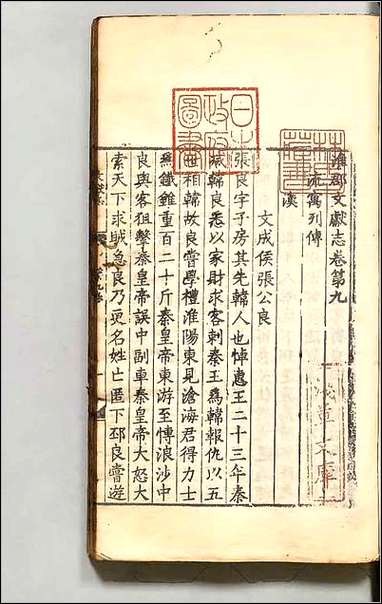 淮郡文獻志卷第九
流寓列傳
漢
文成侯張公良
張良字子房其先韓人也悼惠王二十三年秦
滅韓良悉以家財求客刺秦王爲韓報仇以五
世相韓故良嘗學禮淮陽東見滄海君得力士
爲鐵錐重百二十斤秦皇帝東游至愽浪沙中
良與客狙擊秦皇帝誤中副車秦皇帝大怒大
索天下求賊急良乃更名姓亡匿下邳良嘗遊
日本
政府
圖書